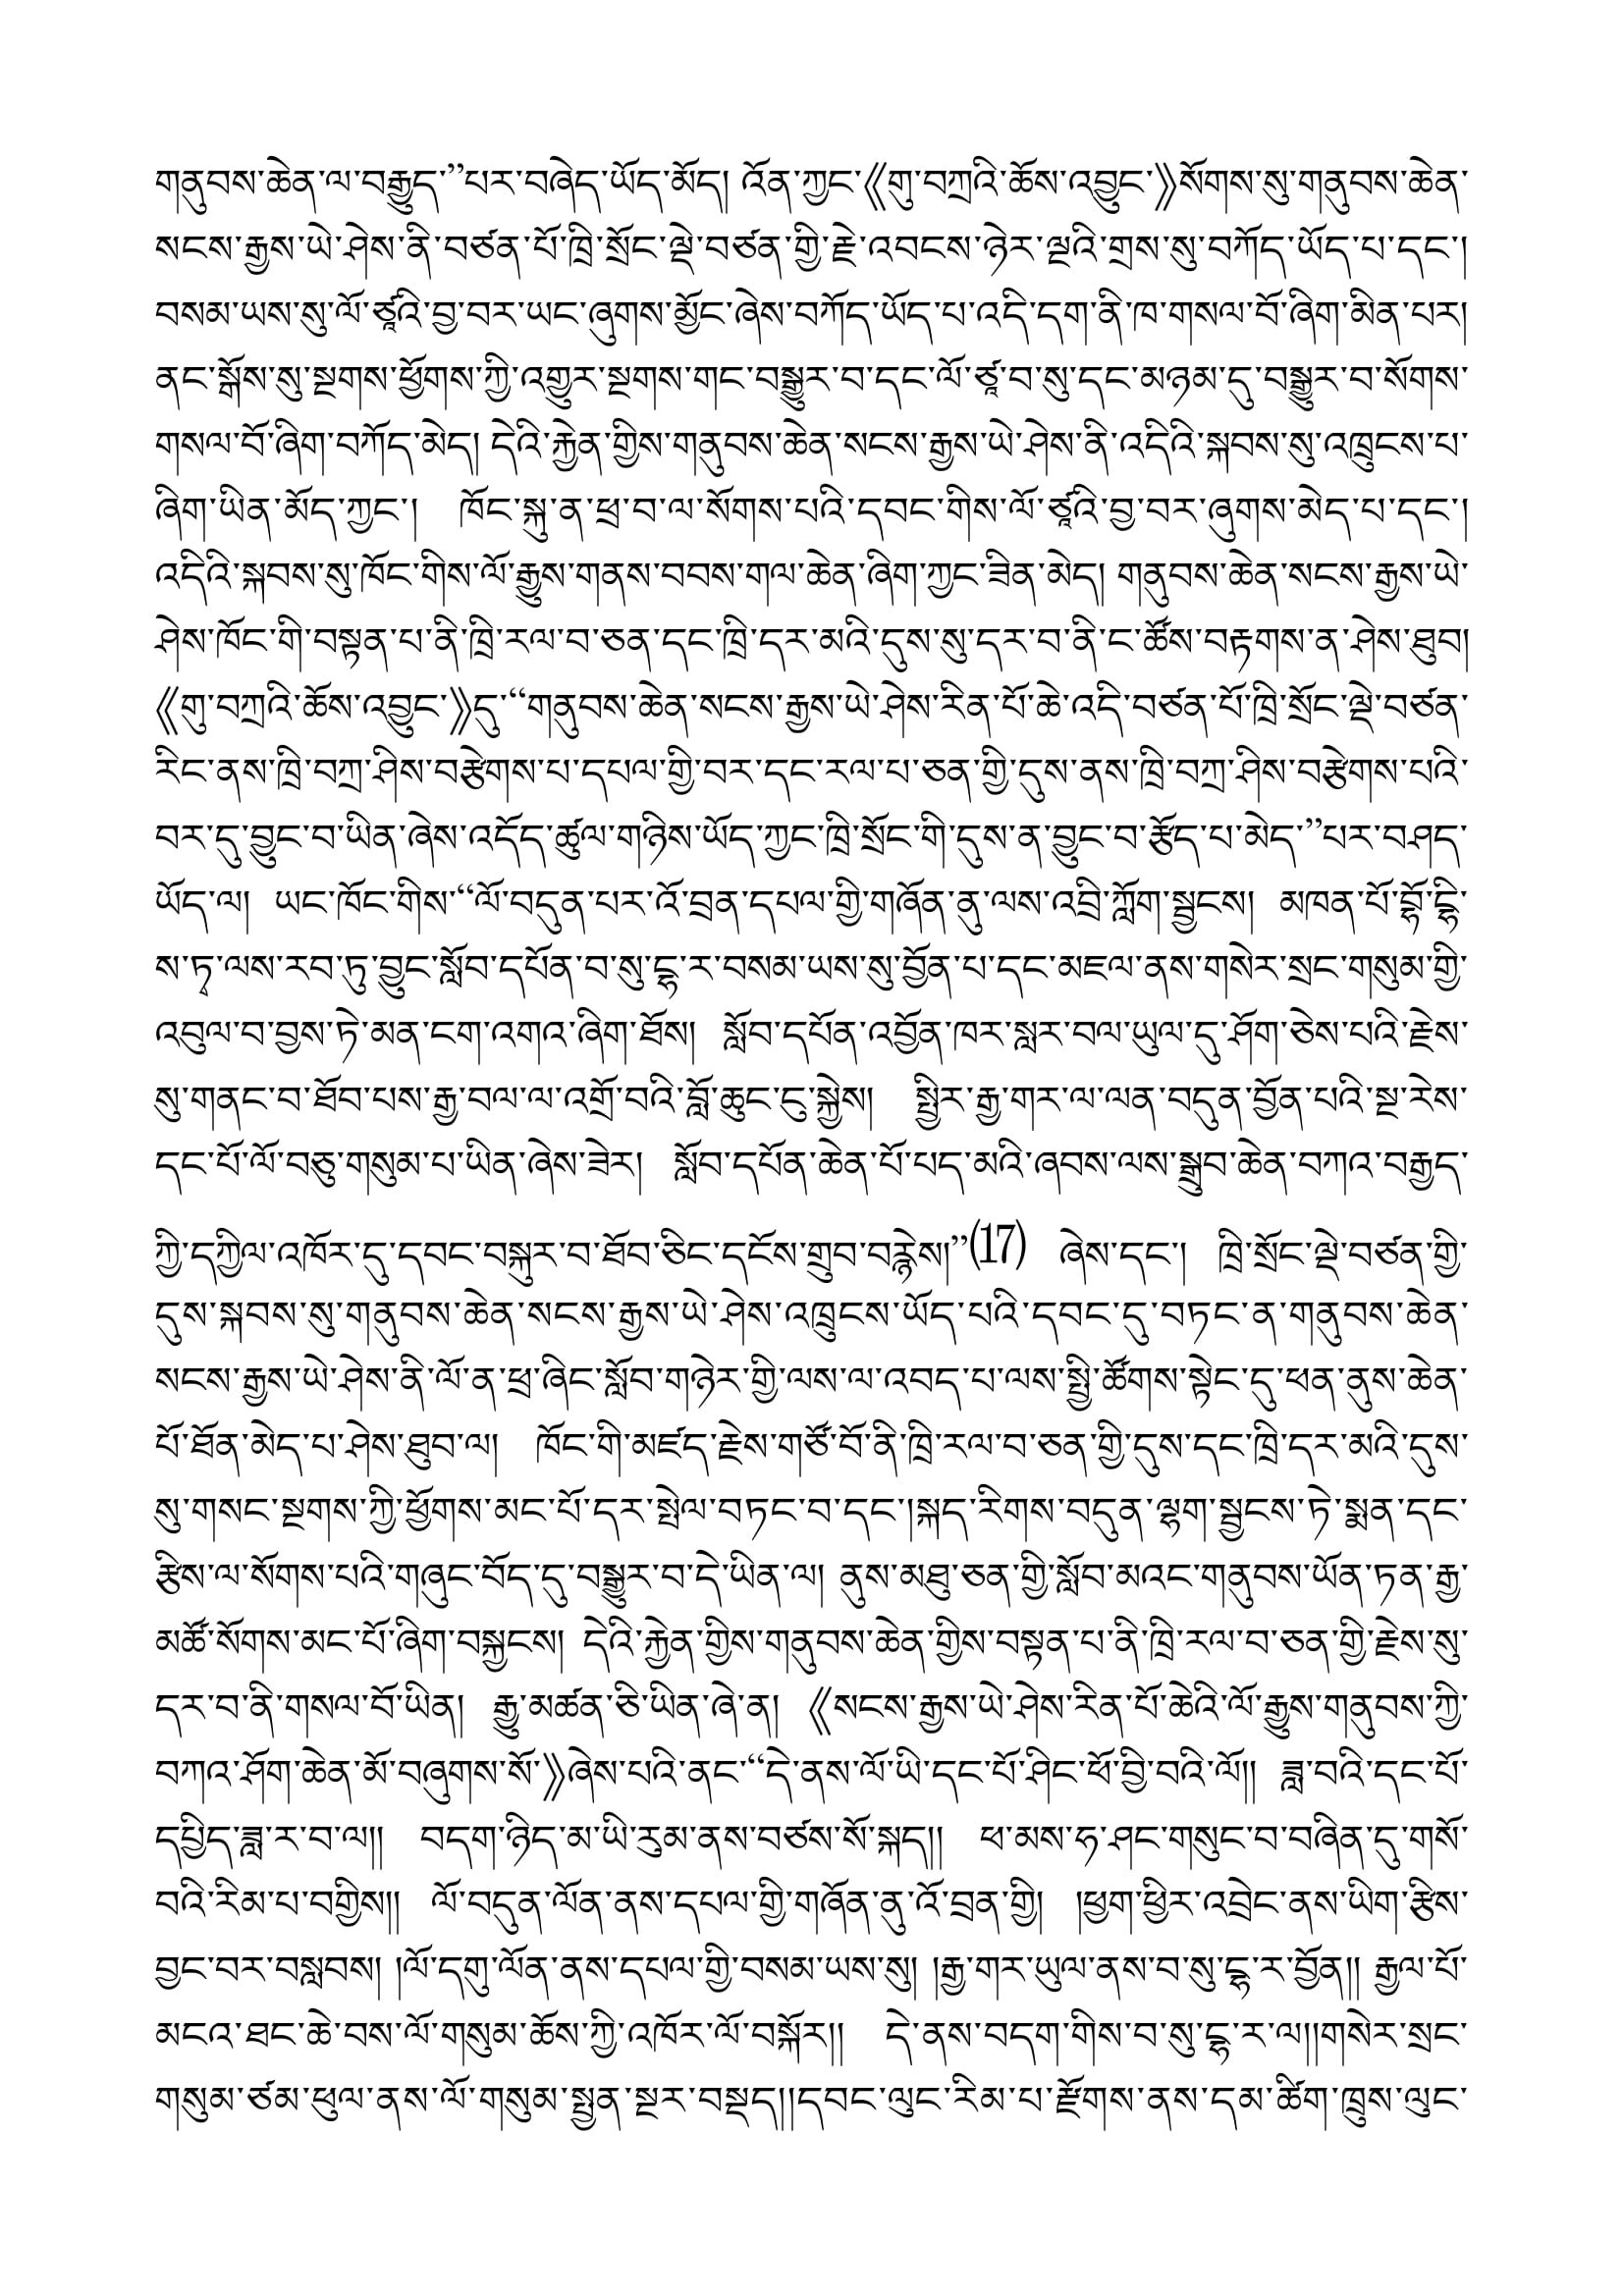 གནུབས་ཆེན་ལ་བརྒྱུད་”པར་བཞེད་ཡོད་མོད། འོན་ཀྱང་《གུ་བཀྲའི་ཆོས་འབྱུང་》སོགས་སུ་གནུབས་ཆེན་
སངས་རྒྱས་ཡེ་ཤེས་ནི་བཙན་པོ་ཁྲི་སྲོང་ལྡེ་བཙན་གྱི་རྗེ་འབངས་ཉེར་ལྔའི་གྲས་སུ་བཀོད་ཡོད་པ་དང་།
བསམ་ཡས་སུ་ལོ་ཙཱའི་བྱ་བར་ཡང་ཞུགས་མྱོང་ཞེས་བཀོད་ཡོད་པ་འདི་དག་ནི་ཁ་གསལ་བོ་ཞིག་མིན་པར།
ནང་སྒོས་སུ་སྔགས་ཕྱོགས་ཀྱི་འགྱུར་སྔགས་གང་བསྒྱུར་བ་དང་ལོ་ཙཱ་བ་སུ་དང་མཉམ་དུ་བསྒྱུར་བ་སོགས་
གསལ་བོ་ཞིག་བཀོད་མེད། དེའི་རྐྱེན་གྱིས་གནུབས་ཆེན་སངས་རྒྱས་ཡེ་ཤེས་ནི་འདིའི་སྐབས་སུ་འཁྲུངས་པ་
ཞིག་ཡིན་མོད་ཀྱང་། ཁོང་སྐུ་ན་ཕྲ་བ་ལ་སོགས་པའི་དབང་གིས་ལོ་ཙཱའི་བྱ་བར་ཞུགས་མེད་པ་དང་།
འདིའི་སྐབས་སུ་ཁོང་གིས་ལོ་རྒྱུས་གནས་བབས་གལ་ཆེན་ཞིག་ཀྱང་ཟིན་མེད། གནུབས་ཆེན་སངས་རྒྱས་ཡེ་
ཤེས་ཁོང་གི་བསྟན་པ་ནི་ཁྲི་རལ་བ་ཅན་དང་ཁྲི་དར་མའི་དུས་སུ་དར་བ་ནི་ང་ཚོས་བརྟགས་ན་ཤེས་ཐུབ།
《གུ་བཀྲའི་ཆོས་འབྱུང་》དུ་“གནུབས་ཆེན་སངས་རྒྱས་ཡེ་ཤེས་རིན་པོ་ཆེ་འདི་བཙན་པོ་ཁྲི་སྲོང་ལྡེ་བཙན་
རིང་ནས་ཁྲི་བཀྲ་ཤིས་བརྩེགས་པ་དཔལ་གྱི་བར་དང་རལ་པ་ཅན་གྱི་དུས་ནས་ཁྲི་བཀྲ་ཤིས་བརྩེགས་པའི་
བར་དུ་བྱུང་བ་ཡིན་ཞེས་འདོད་ཚུལ་གཉིས་ཡོད་ཀྱང་ཁྲི་སྲོང་གི་དུས་ན་བྱུང་བ་རྩོད་པ་མེད་”པར་བཤད་
ཡོད་ལ། ཡང་ཁོང་གིས་“ལོ་བདུན་པར་འོ་བྲན་དཔལ་གྱི་གཞོན་ནུ་ལས་འབྲི་ཀློག་སྦྱངས། མཁན་པོ་བྷོ་དྷི་
ས་ཏྭ་ལས་རབ་ཏུ་བྱུང་སློབ་དཔོན་བ་སུ་དྷ་ར་བསམ་ཡས་སུ་བྱོན་པ་དང་མཇལ་ནས་གསེར་སྲང་གསུམ་གྱི་
འབུལ་བ་བྱས་ཏེ་མན་ངག་འགའ་ཞིག་ཐོས། སློབ་དཔོན་འབྱོན་ཁར་སླར་བལ་ཡུལ་དུ་ཤོག་ཅེས་པའི་རྗེས་
སུ་གནང་བ་ཐོབ་པས་རྒྱ་བལ་ལ་འགྲོ་བའི་བློ་ཆུང་ངུ་སྐྱེས། སྤྱིར་རྒྱ་གར་ལ་ལན་བདུན་བྱོན་པའི་སྔ་རེས་
དང་པོ་ལོ་བཅུ་གསུམ་པ་ཡིན་ཞེས་ཟེར། སློབ་དཔོན་ཆེན་པོ་པད་མའི་ཞབས་ལས་སྒྲུབ་ཆེན་བཀའ་བརྒྱད་
ཀྱི་དཀྱིལ་འཁོར་དུ་དབང་བསྐུར་བ་ཐོབ་ཅིང་དངོས་གྲུབ་བརྙེས།”(17) ཞེས་དང་། ཁྲི་སྲོང་ལྡེ་བཙན་གྱི་
དུས་སྐབས་སུ་གནུབས་ཆེན་སངས་རྒྱས་ཡེ་ཤེས་འཁྲུངས་ཡོད་པའི་དབང་དུ་བཏང་ན་གནུབས་ཆེན་
སངས་རྒྱས་ཡེ་ཤེས་ནི་ལོ་ན་ཕྲ་ཞིང་སློབ་གཉེར་གྱི་ལས་ལ་འབད་པ་ལས་སྤྱི་ཚོགས་སྟེང་དུ་ཕན་ནུས་ཆེན་
པོ་ཐོན་མེད་པ་ཤེས་ཐུབ་ལ། ཁོང་གི་མཛད་རྗེས་གཙོ་བོ་ནི་ཁྲི་རལ་བ་ཅན་གྱི་དུས་དང་ཁྲི་དར་མའི་དུས་
སུ་གསང་སྔགས་ཀྱི་ཕྱོགས་མང་པོ་དར་སྤེལ་བཏང་བ་དང་།སྐད་རིགས་བདུན་ལྷག་སྦྱངས་ཏེ་སྨན་དང་
རྩིས་ལ་སོགས་པའི་གཞུང་བོད་དུ་བསྒྱུར་བ་དེ་ཡིན་ལ། ནུས་མཐུ་ཅན་གྱི་སློབ་མའང་གནུབས་ཡོན་ཏན་རྒྱ་
མཚོ་སོགས་མང་པོ་ཞིག་བསྐྱངས། དེའི་རྐྱེན་གྱིས་གནུབས་ཆེན་གྱིས་བསྟན་པ་ནི་ཁྲི་རལ་བ་ཅན་གྱི་རྗེས་སུ་
དར་བ་ནི་གསལ་བོ་ཡིན། རྒྱུ་མཚན་ཅི་ཡིན་ཞེ་ན། 《སངས་རྒྱས་ཡེ་ཤེས་རིན་པོ་ཆེའི་ལོ་རྒྱུས་གནུབས་ཀྱི་
བཀའ་ཤོག་ཆེན་མོ་བཞུགས་སོ་》ཞེས་པའི་ནང་“དེ་ནས་ལོ་ཡི་དང་པོ་ཤིང་ཕོ་བྱི་བའི་ལོ།། ཟླ་བའི་དང་པོ་
དཔྱིད་ཟླ་ར་བ་ལ།། བདག་ཉིད་མ་ཡི་རུམ་ནས་བཙས་སོ་སྐད།། ཕ་མས་ཧ་ཤང་གསུང་བ་བཞིན་དུ་གསོ་
བའི་རིམ་པ་བགྱིས།། ལོ་བདུན་ལོན་ནས་དཔལ་གྱི་གཞོན་ནུ་འོ་བྲན་གྱི། །ཕྱག་ཕྱིར་འབྲེང་ནས་ཡིག་རྩིས་
བྱང་བར་བསླབས། །ལོ་དགུ་ལོན་ནས་དཔལ་གྱི་བསམ་ཡས་སུ། །རྒྱ་གར་ཡུལ་ནས་བ་སུ་དྷ་ར་བྱོན།། རྒྱལ་པོ་
མངའ་ཐང་ཆེ་བས་ལོ་གསུམ་ཆོས་ཀྱི་འཁོར་ལོ་བསྐོར།། དེ་ནས་བདག་གིས་བ་སུ་དྷ་ར་ལ།།གསེར་སྲང་
གསུམ་ཙམ་ཕུལ་ནས་ལོ་གསུམ་སྤྱན་སྔར་བསྡད།།དབང་ལུང་རིམ་པ་རྫོགས་ནས་དམ་ཚིག་ཁྲུས་ལུང་